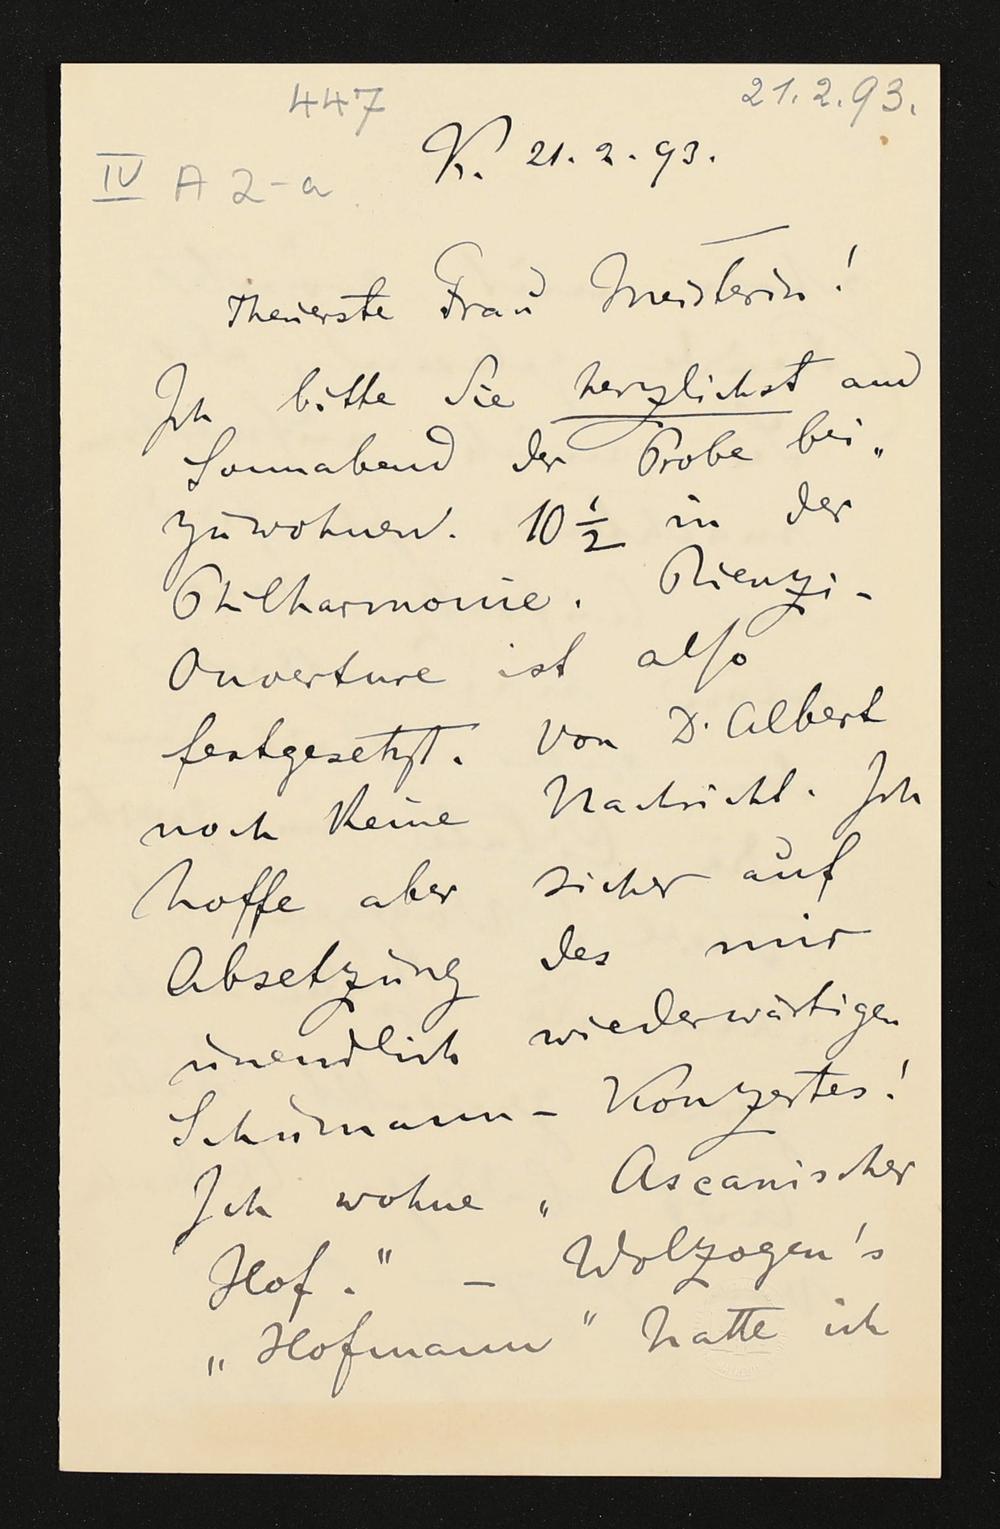 447
21.2.93.
IV A 2-a
K. 21.2.93.
Theuerste Frau Meisterin!
Ich bitte Sie herzlichst am
Sonnabend der Probe bei„
zuwohnen. 10 1/2 in der
Philharmonie. Rienzi-
Ouverture ist also
festgesetzt. Von Dr. Albert
noch keine Nachricht. Ich
hoffe aber sicher auf
Absetzung des mir
unendlich wiederwärtigen
Schumann-Konzertes!
Ich wohne „Ascanischer
Hof." – Wolzogen's
„Hofmann" hatte ich